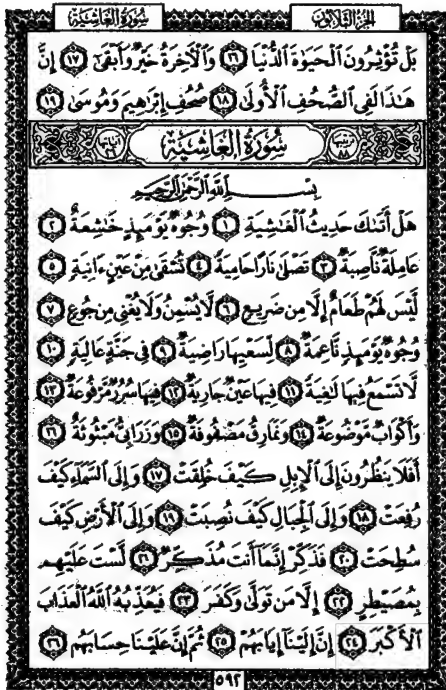 سُورَةُ الغَاشِيَة الجزء الثلاثون
بَلْ تُؤْثِرُونَ ٱلْحَيَوٰةَ ٱلدُّنْيَا ١٦ وَٱلْأَخِرَةُ خَيْرٌ وَأَبْقَىٰٓ ١٧ إِنَّ
هَٰذَا لَفِى ٱلصُّحُفِ ٱلْأُولَىٰ ١٨ صُحُفِ إِبْرَٰهِيمَ وَمُوسَىٰ ١٩
سُورَةُ الغَاشِيَة
بِسْمِ ٱللَّهِ ٱلرَّحْمَٰنِ ٱلرَّحِيمِ
هَلْ أَتَىٰكَ حَدِيثُ ٱلْغَٰشِيَةِ ١ وُجُوهٌ يَوْمَئِذٍ خَٰشِعَةٌ ٢
عَامِلَةٌ نَّاصِبَةٌ ٣ تَصْلَىٰ نَارًا حَامِيَةً ٤ تُسْقَىٰ مِنْ عَيْنٍ ءَانِيَةٍ ٥
لَّيْسَ لَهُمْ طَعَامٌ إِلَّا مِن ضَرِيعٍ ٦ لَّا يُسْمِنُ وَلَا يُغْنِى مِن جُوعٍ ٧
وُجُوهٌ يَوْمَئِذٍ نَّاعِمَةٌ ٨ لِّسَعْيِهَا رَاضِيَةٌ ٩ فِى جَنَّةٍ عَالِيَةٍ ١٠
لَّا تَسْمَعُ فِيهَا لَٰغِيَةً ١١ فِيهَا عَيْنٌ جَارِيَةٌ ١٢ فِيهَا سُرُرٌ مَّرْفُوعَةٌ ١٣
وَأَكْوَابٌ مَّوْضُوعَةٌ ١٤ وَنَمَارِقُ مَصْفُوفَةٌ ١٥ وَزَرَابِىُّ مَبْثُوثَةٌ ١٦
أَفَلَا يَنظُرُونَ إِلَى ٱلْإِبِلِ كَيْفَ خُلِقَتْ ١٧ وَإِلَى ٱلسَّمَآءِ كَيْفَ
رُفِعَتْ ١٨ وَإِلَى ٱلْجِبَالِ كَيْفَ نُصِبَتْ ١٩ وَإِلَى ٱلْأَرْضِ كَيْفَ
سُطِحَتْ ٢٠ فَذَكِّرْ إِنَّمَآ أَنتَ مُذَكِّرٌ ٢١ لَّسْتَ عَلَيْهِم
بِمُصَيْطِرٍ ٢٢ إِلَّا مَن تَوَلَّىٰ وَكَفَرَ ٢٣ فَيُعَذِّبُهُ ٱللَّهُ ٱلْعَذَابَ
ٱلْأَكْبَرَ ٢٤ إِنَّ إِلَيْنَآ إِيَابَهُمْ ٢٥ ثُمَّ إِنَّ عَلَيْنَا حِسَابَهُم ٢٦
٥٩٢